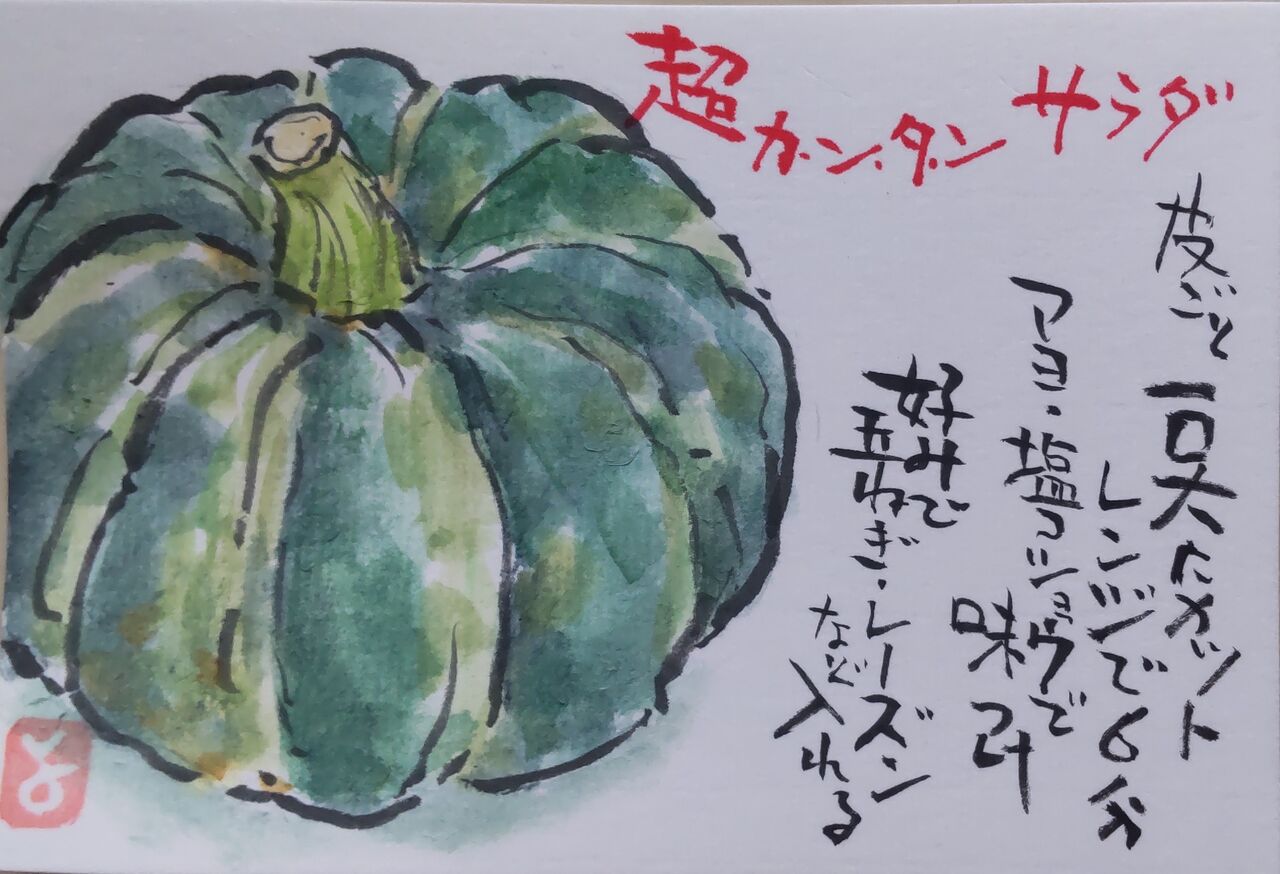 超カンタンサラダ
皮ごと一口大にカット
レンジで6分
マヨ・塩コショウで
味つけ
好みで
玉ねぎ・レーズン
など入れる
と